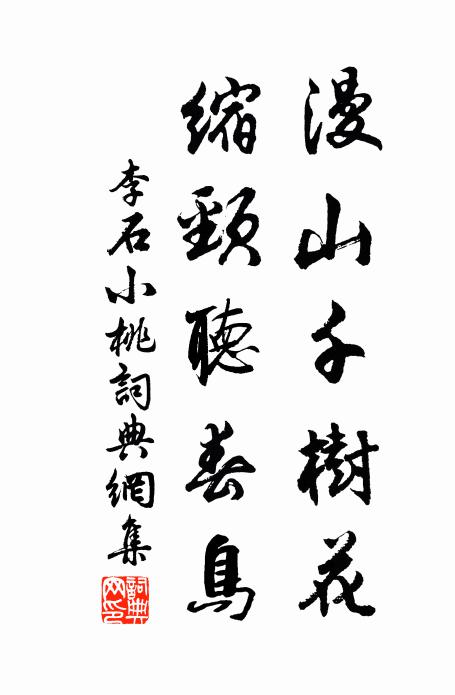 漫山千樹花
縮頸聽春鳥
李石小桃詞典網集
詞典網印